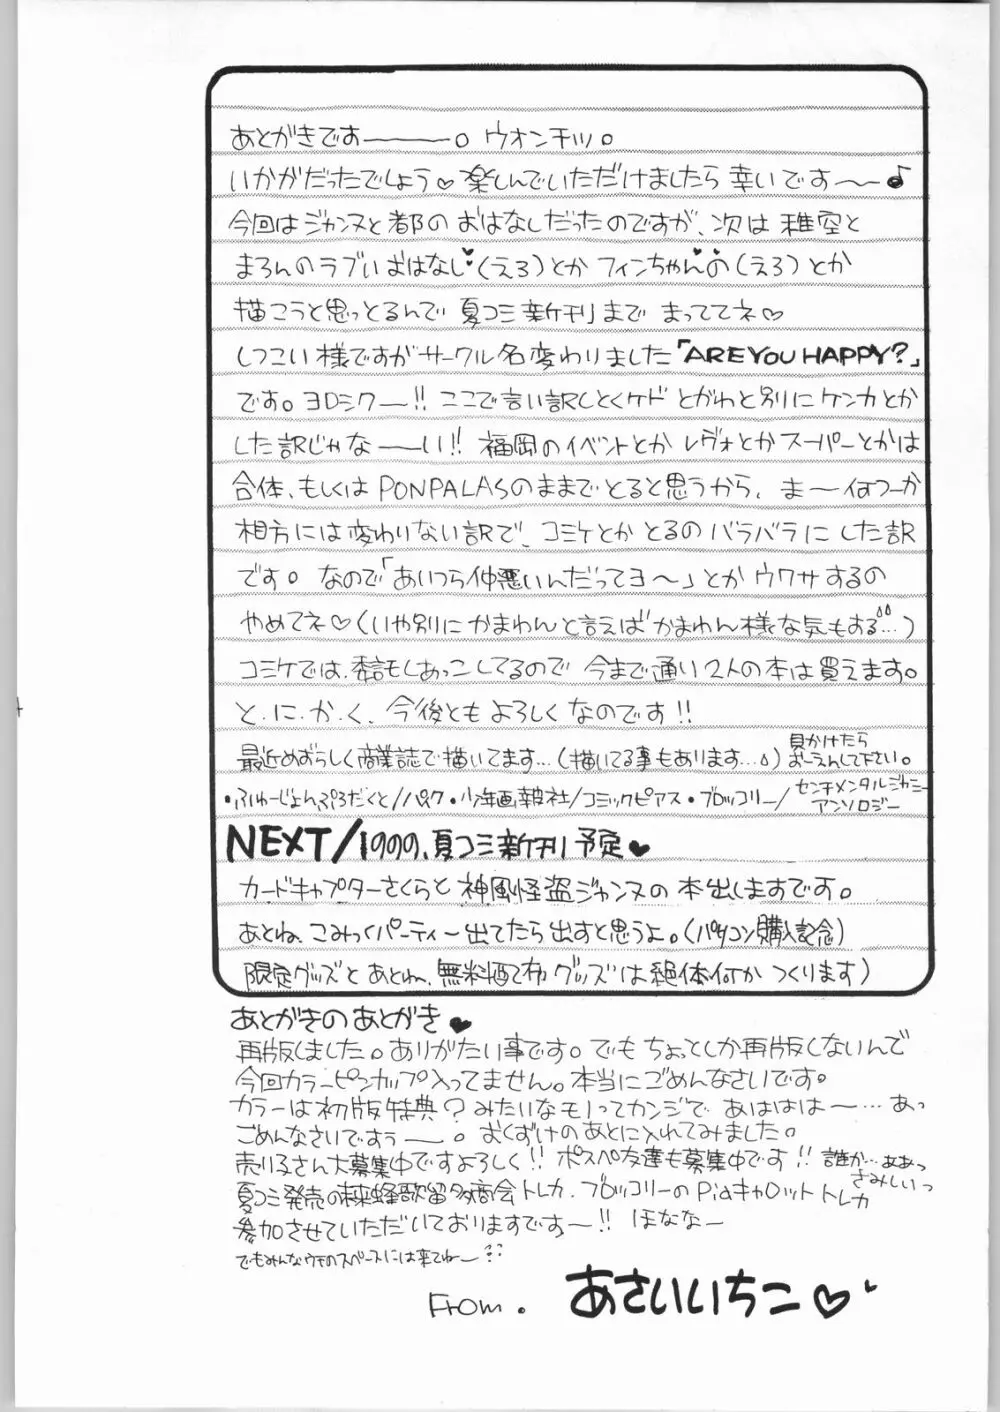 あとがきです———。ウオンチッ。
いかがだったでしょう♡楽しんでいただけましたら幸いです〜〜♪
今回はジャンヌと都のおはなしだったのですが、次は稚空と
まろんのラブいおはなし♥(えろ)とかフィンちゃんの(えろ)とか
描こうと思っとるんで夏コミ新刊まで まっててネ♡
しつこい様ですがサークル名変わりました「ARE YOU HAPPY?」
です。ヨロシクー!! ここで言い訳しとくケド とがわと別にケンカとか
した訳じゃな——い!! 福岡のイベントとか レヴォとかスーパーとかは
合体、もしくはPONPALASのままでとると思うから、ま〜何つーか
相方には変わりない訳で、コミケとか とるのバラバラにした訳
です。なので「あいつら仲悪いんだってヨ〜」とかウワサするの
やめてネ♡(いや別にかまわんと言えばかまわん様な気もする…)
コミケでは、委託もしあっこしてるので 今まで通り2人の本は買えます。
と.に.か.く、今後ともよろしくなのです!!
最近めずらしく商業誌で描いてます…(描いてる事もあります…)見かけたら
おーえんして下さい。
・ふゅーじょんぷろだくと/パスク・少年画報社/コミックピアス・ブロッコリー/センチメンタルジャニー
アンソロジー
NEXT/1999、夏コミ新刊予定♥
カードキャプターさくらと神風怪盗ジャンヌの本出しますです。
あとね、こみっくパーティー出てたら出すと思うよ。(パソコン購入記念)
限定グッズとあとね、無料配布グッズは絶体何かつくります)
あとがきのあとがき♥
再版しました。ありがたい事です。でもちょっとしか再版しないんで
今回カラーピンナップ入ってません。本当にごめんなさいです。
カラーは初版特典?みたいなモノってカンジで あははは〜…あっ
ごめんなさいですぅー。おくずけのあとに入れてみました。
売り子さん大募集中ですよろしく!! ポスペ友達も募集中です!! 誰か…ああっ
さみしいっ
夏コミ発売の 蜂歌留多商会トレカ、ブロッコリーのPiaキャロットトレカ
参加させていただいておりますです〜!! ほななー
でもみんなウチのスペースには来てねー
From. あさいいちこ♡